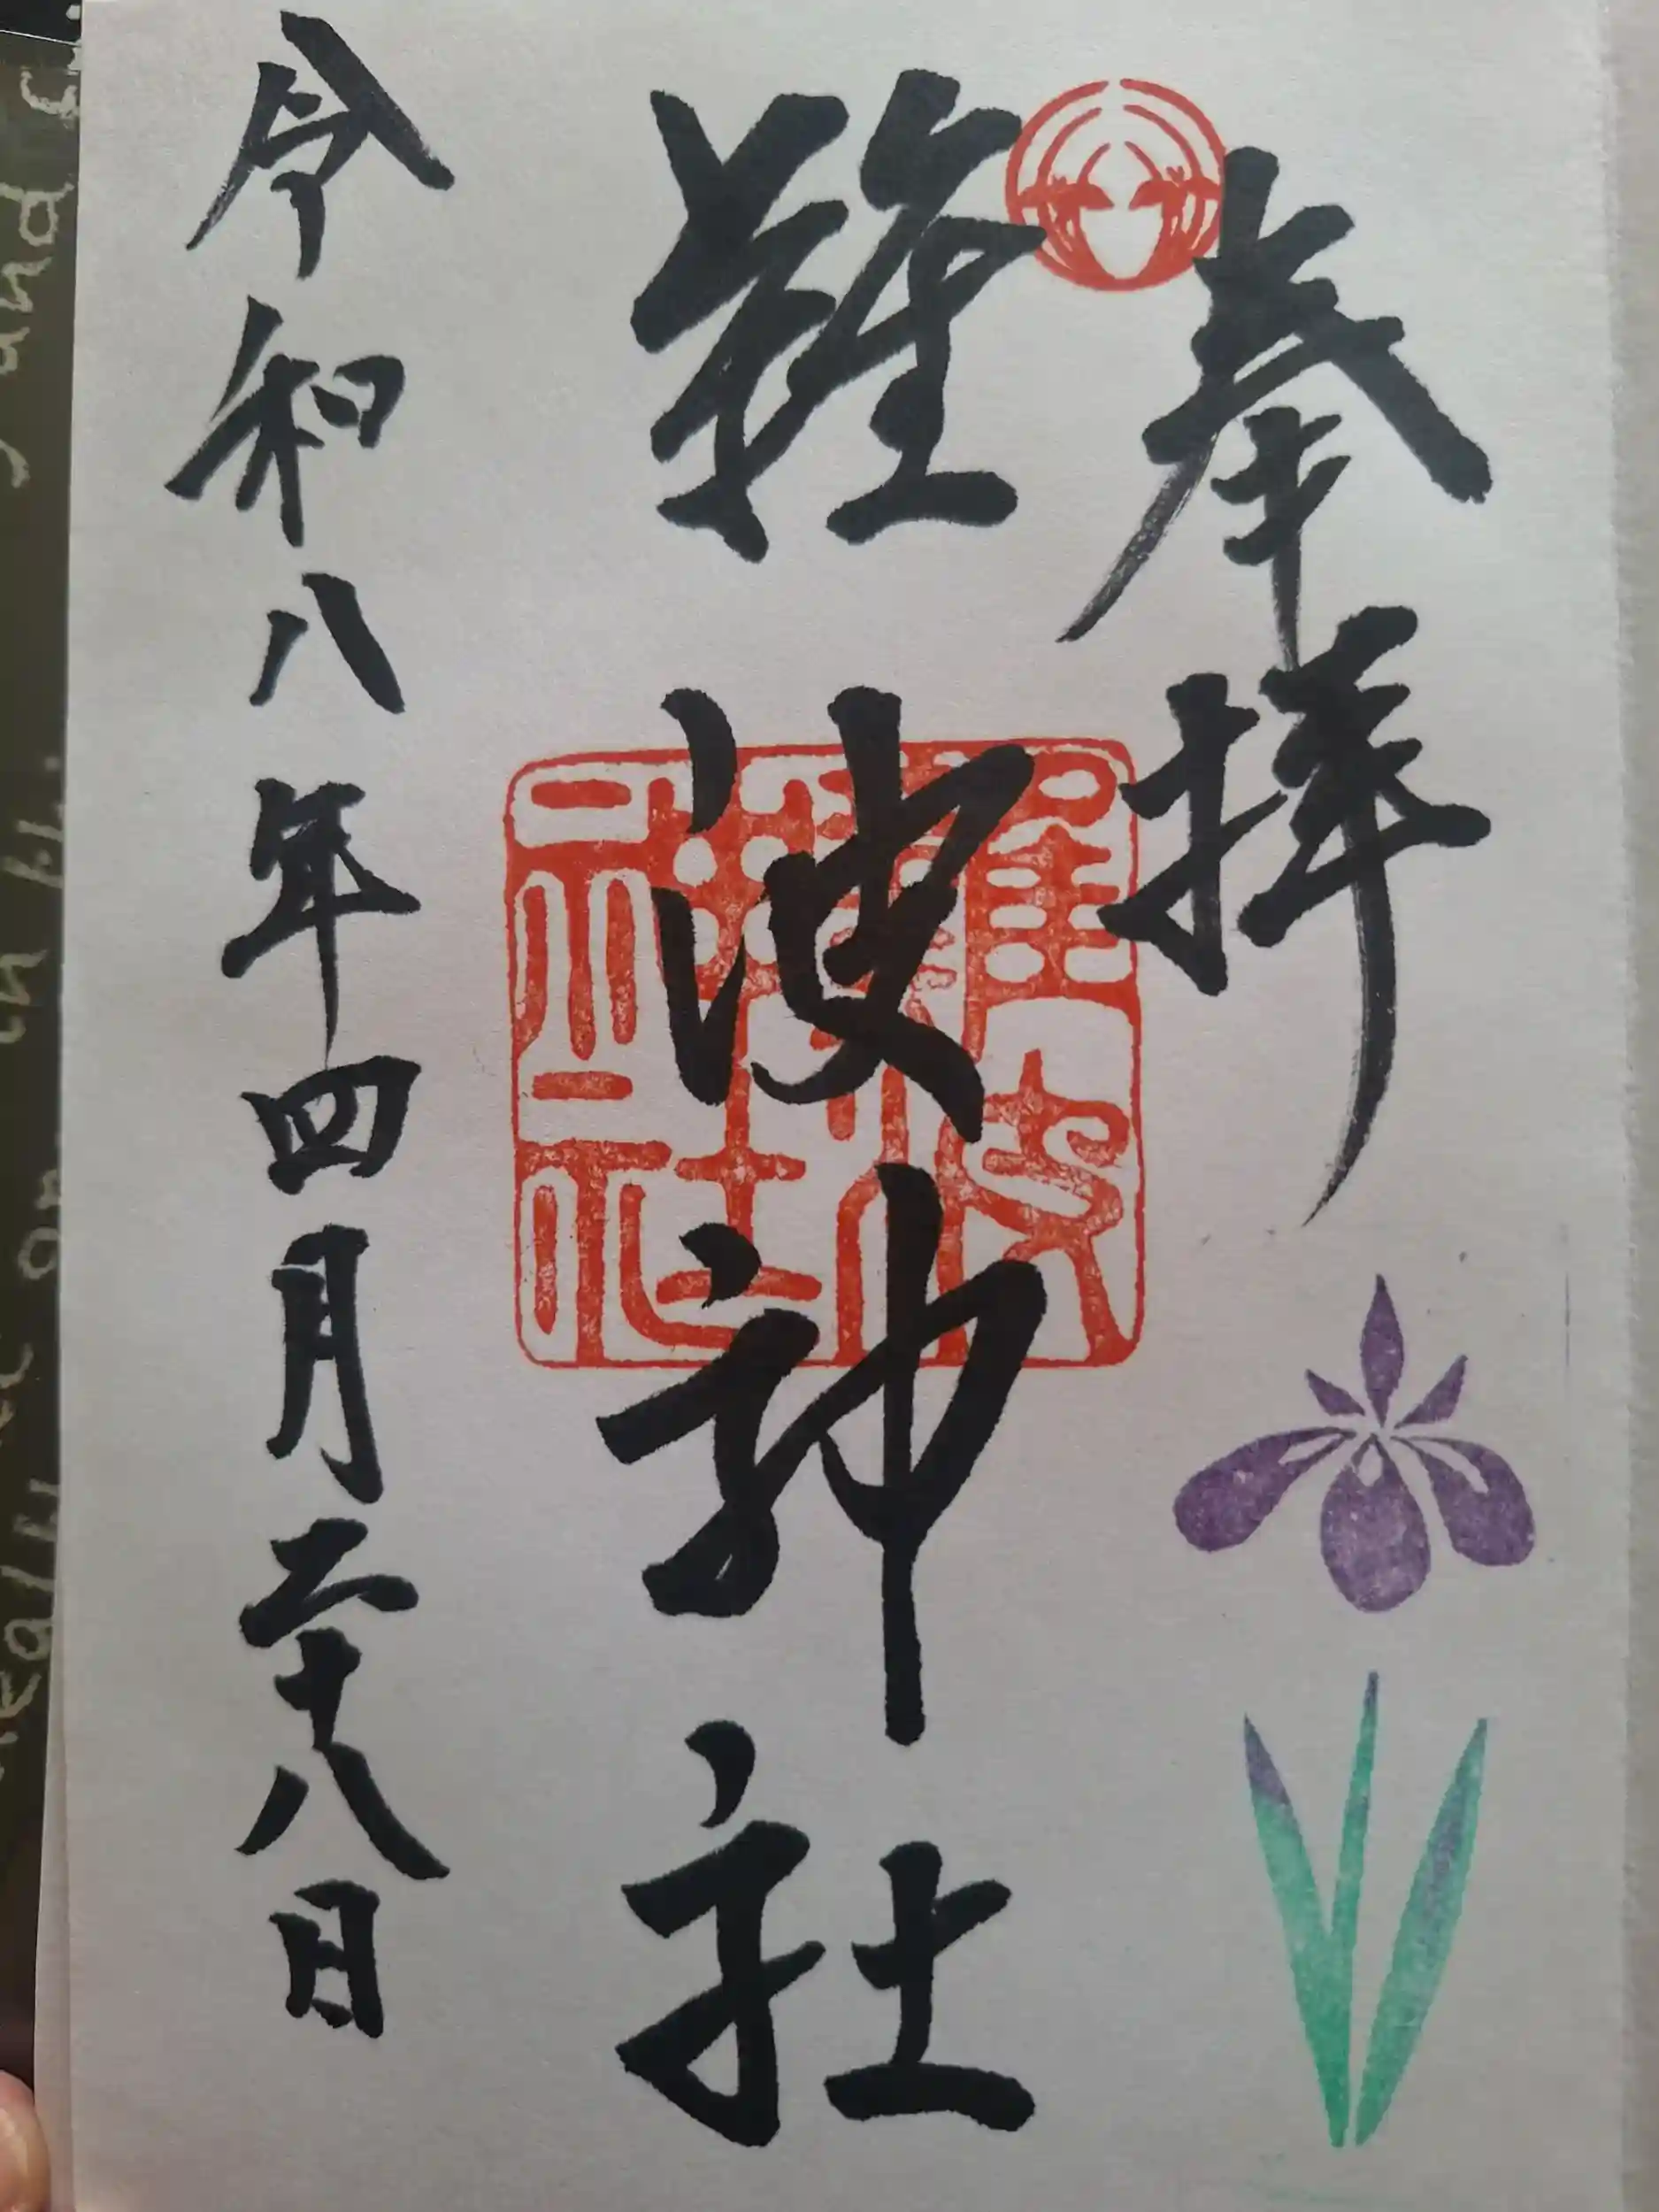 奉拝
難波神社
令和八年四月二十八日
難波神社